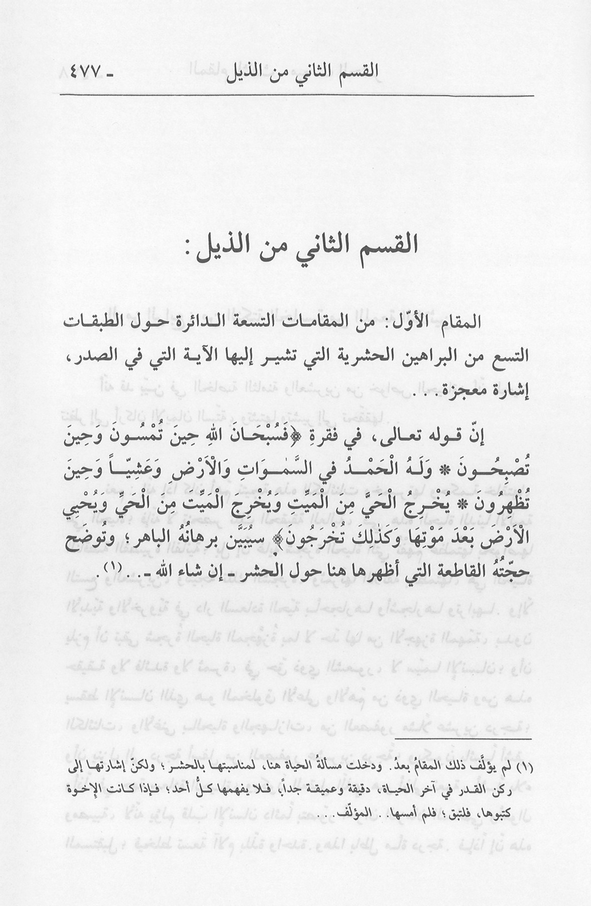 القسم الثاني من الذيل ـ ٤٧٧
القسم الثاني من الذيل :
المقام الأوّل : من المقامات التسعة الدائرة حول الطبقات
التسع من البراهين الحشرية التي تشير إليها الآية التي في الصدر ،
إشارة معجزة . . .
إنّ قوله تعالى ، في فقرةِ ﴿فَسُبْحَانَ اللهِ حِينَ تُمْسُونَ وَحِينَ
تُصْبِحُونَ * وَلَهُ الْحَمْدُ في السَّمٰوَاتِ وَالْأَرْضِ وَعَشِيّاً وَحِينَ
تُظْهِرُونَ * يُخْرِجُ الْحَيَّ مِنَ الْمَيِّتِ وَيُخْرِجِ الْمَيِّتَ مِنَ الْحَيِّ وَيُحْيِي
الْأَرْضَ بَعْدَ مَوْتِهَا وَكَذٰلِكَ تُخْرَجُون﴾ سيُبَيِّن برهانُهُ الباهر ؛ وتُوضح
حجّتُهُ القاطعة التي أظهرها هنا حول الحشر ـ إن شاء الله ـ . . (١)
(١) لم يؤلَّف ذلك المقامُ بعدُ . ودخلت مسألةُ الحياة هنا ، لمناسبتهـا بالحشر ؛ ولكنّ إشارتهـا إلى
ركن القدر في آخر الحيـاة ، دقيقة وعميقـة جداً ، فـلا يفهمها كـلُّ أحد ؛ فـإذا كـانت الإخـوة
كتبوها ، فلتبق ؛ فلم أمسها . . المؤلّف . . .